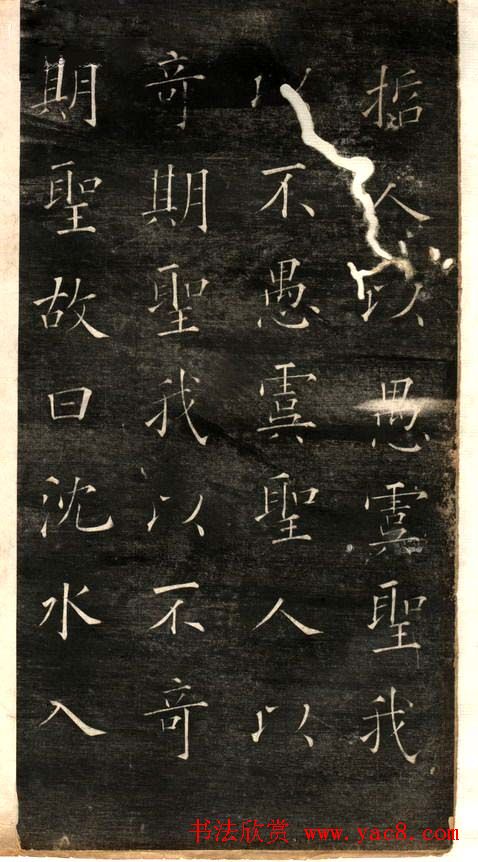 哲人以愚虞聖我
以不愚虞聖人以
奇期聖我以不奇
期聖故曰沈水入
书法欣赏 www.yac8.com